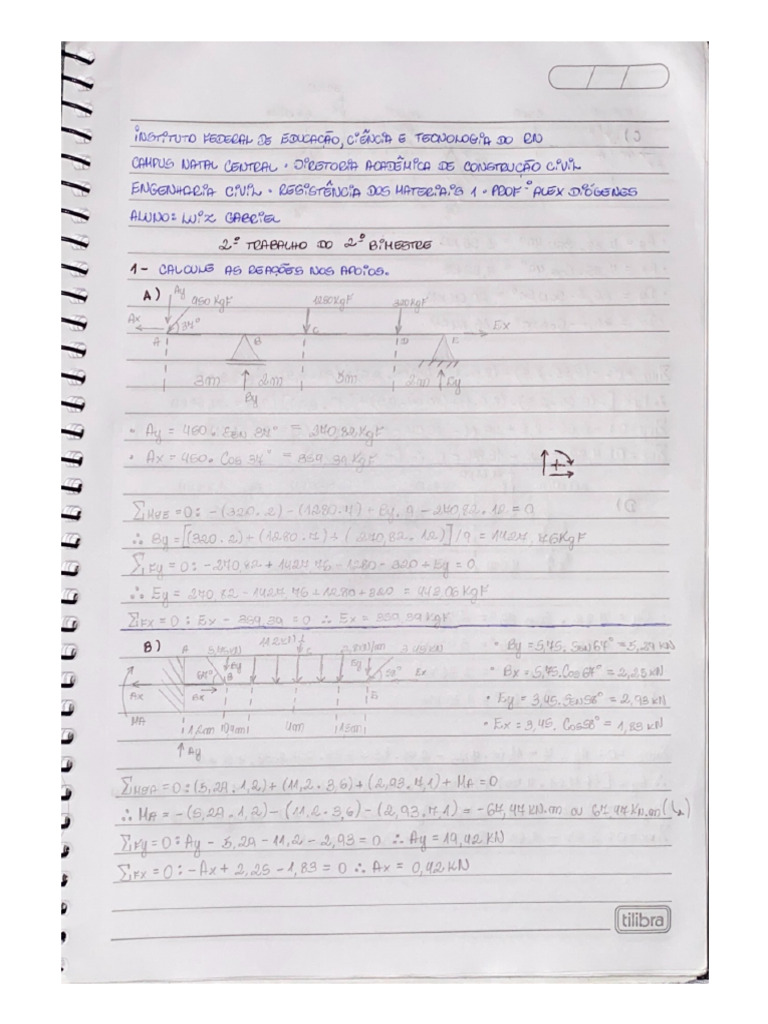 INSTITUTO FEDERAL DE EDUCAÇÃO, CIÊNCIA E TECNOLOGIA DO RN
CAMPUS NATAL CENTRAL · DIRETORIA ACADÊMICA DE CONSTRUÇÃO CIVIL
ENGENHARIA CIVIL · RESISTÊNCIA DOS MATERIAIS 1 · PROF° ALEX DIÓGENES
ALUNO: LUIZ GABRIEL
2° TRABALHO DO 2° BIMESTRE
1- CALCULE AS REAÇÕES NOS APOIOS.
A) Ay 450 KgF 1280KgF 320KgF
Ax 37° Ex
A B C D E
3m 2m 5m 2m Ey
By
• Ay = 450. Sen 37° = 270,82 KgF
• Ax = 450. Cos 37° = 359,39 KgF
+
ΣMSE = 0: -(320.2) - (1280.7) + By. 9 - 270,82. 12 = 0
∴ By = [(320.2) + (1280.7) + (270,82.12)]/9 = 1427,76KgF
ΣFy = 0: -270,82 + 1427,76 - 1280 - 320 + Ey = 0
∴ Ey = 270,82 - 1427,76 + 1280 + 320 = 443,06 KgF
ΣFx = 0: Ex - 359,39 = 0 ∴ Ex = 359,39 KgF
B) A 11,2KN C 3,45KN
67° Ey B Ey 58° Ex
Ax Bx E
MA 1,2m 4m 1,5m
Ay
• By = 5,75. Sen 67° = 5,29 KN
• Bx = 5,75. Cos 67° = 2,25 KN
• Ey = 3,45. Sen 58° = 2,93 KN
• Ex = 3,45. Cos 58° = 1,83 KN
ΣMSA = 0: (5,29. 1,2) + (11,2. 3,6) + (2,93. 7,1) + MA = 0
∴ MA = -(5,29. 1,2) - (11,2. 3,6) - (2,93. 7,1) = -67,47 KN.m ou 67,47 KN.m
ΣFy = 0: Ay - 5,29 - 11,2 - 2,93 = 0 ∴ Ay = 19,42 KN
ΣFx = 0: -Ax + 2,25 - 1,83 = 0 ∴ Ax = 0,42 KN
tilibra